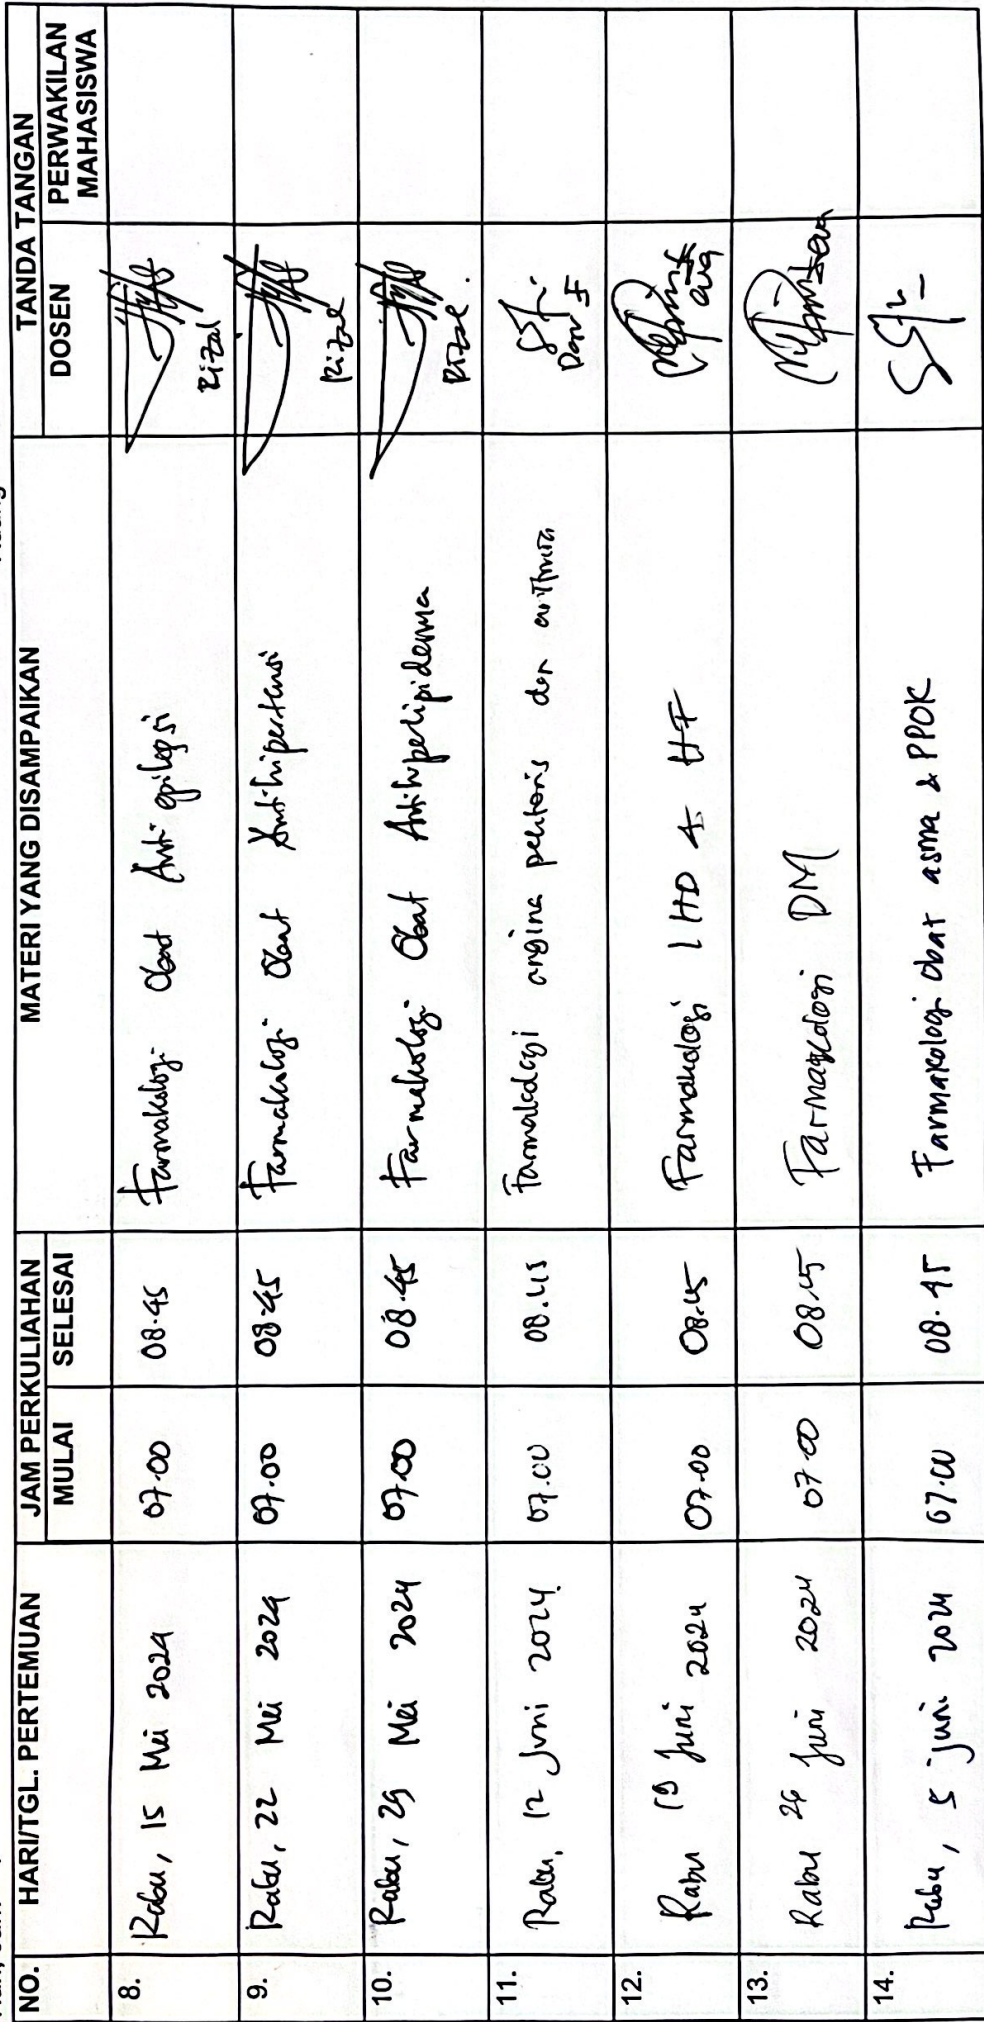 NO. HARI/TGL. PERTEMUAN JAM PERKULIAHAN MATERI YANG DISAMPAIKAN TANDA TANGAN
MULAI SELESAI DOSEN PERWAKILAN MAHASISWA
8. Rabu, 15 Mei 2024 07.00 08.45 Farmakologi Obat Anti epilepsi Rizal
9. Rabu, 22 Mei 2024 07.00 08.45 Farmakologi Obat Antihipertensi Rizal
10. Rabu, 29 Mei 2024 07.00 08.45 Farmakologi Obat Antihiperlipidemia Rizal
11. Rabu, 12 Juni 2024. 07.00 08.45 Farmakologi angina pektoris dan aritmia
12. Rabu 19 Juni 2024 07.00 08.45 Farmakologi IHD & HF
13. Rabu 26 Juni 2024 07.00 08.45 Farmakologi DM
14. Rabu, 5 juni 2024 07.00 08.45 Farmakologi obat asma & PPOK